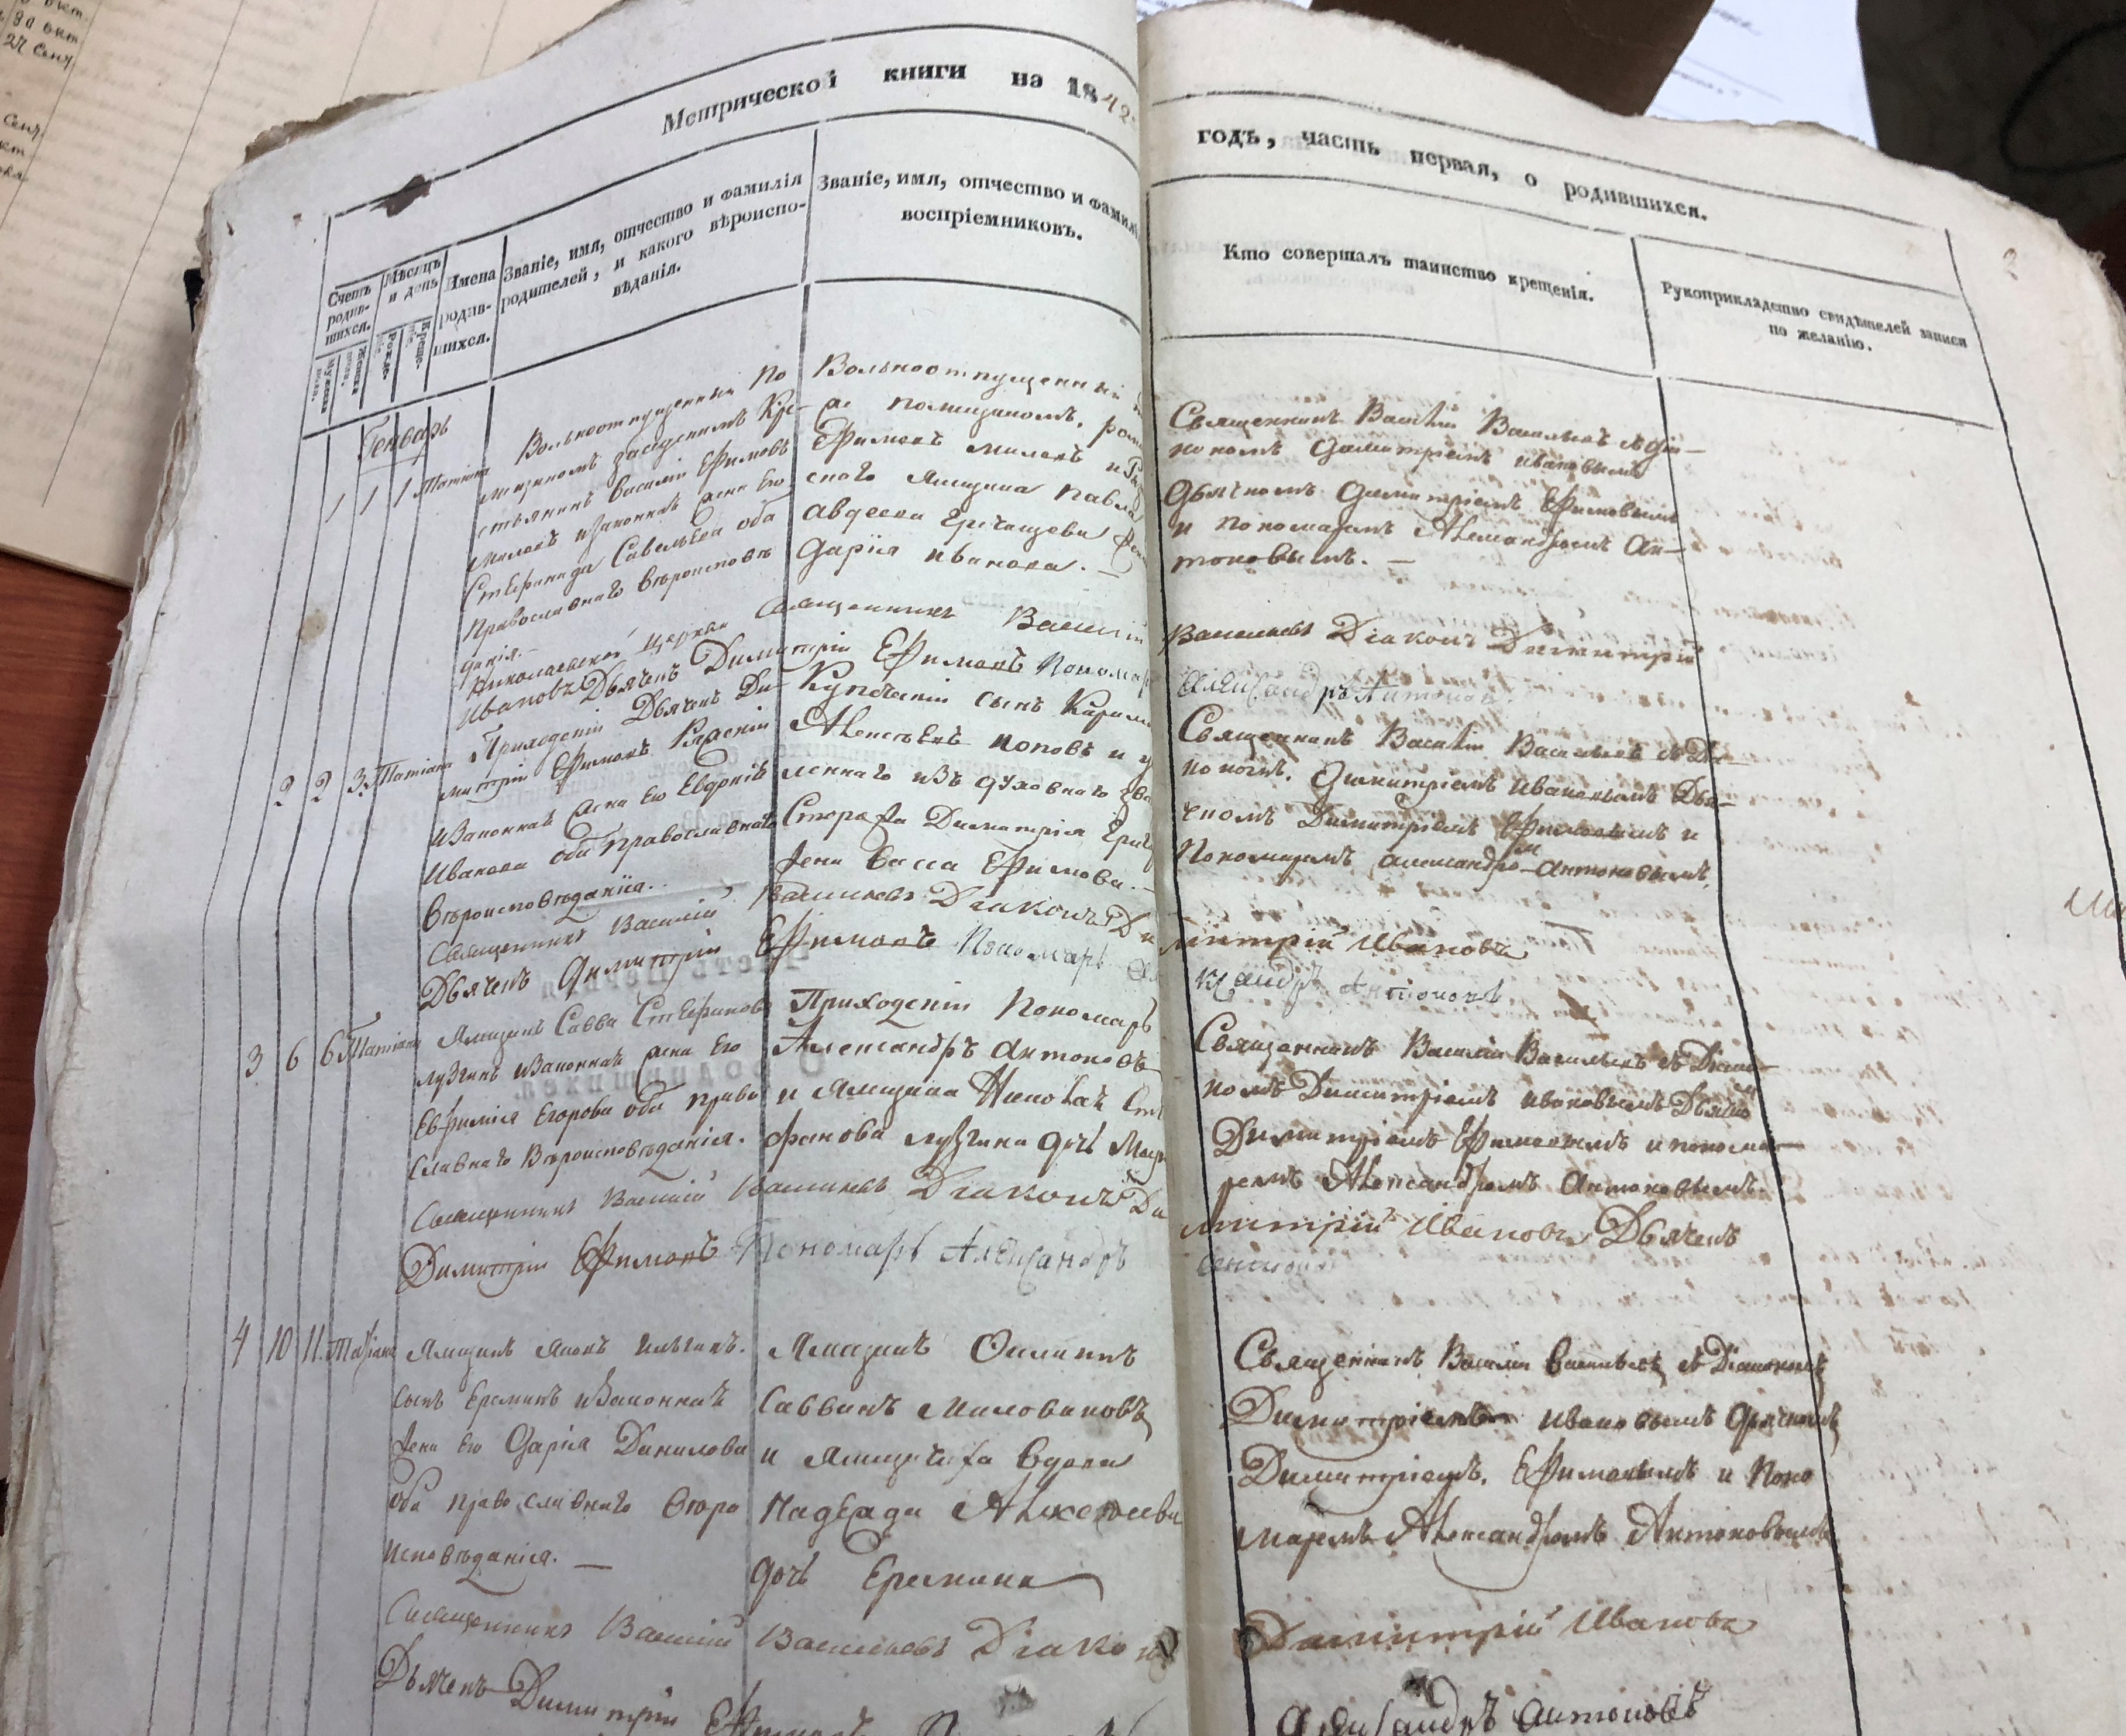 окт.
30 окт
27 Сент.
Сент.
окт
Метрической книги на 1842
годъ, часть первая, о родившихся.
2
Счетъ родив-
шихся.
Мужеска
пола.
Женска
пола.
Мѣсяцъ
и день
Рожде-
нія.
Креще-
нія.
Имена
родив-
шихся.
Званіе, имя, отчество и фамилія
родителей, и какого вѣроиспо-
вѣданія.
Званіе, имя, отчество и фамилі
воспріемниковъ.
Кто совершалъ таинство крещенія.
Рукоприкладство свидѣтелей записи
по желанію.
Генварь
1 1 1 Татіана
Вольноотпущенный По
мещикомъ Кре-
стьянинъ Василій Ефимовъ
Милехъ и законная жена Его
Стефанида Савельева оба
Православнаго вѣроисповѣ
данія.
Вольноотпущенный
помещикомъ,
Ефимовъ Милехъ и
скаго Ямщика Павла
Авдеева
Дарія Иванова.
Священникъ Василій Васильевъ съ Дія-
кономъ Димитріемъ Ивановымъ
Дьячкомъ Димитріемъ Ефимовымъ
и Пономаремъ Александромъ Ан-
тоновымъ.
Николаевской Церкви Священникъ Василій Васильевъ Діаконъ Димитрій
Ивановъ Дьячекъ Димитрій Ефимовъ Пономарь Александръ Антонов
2 2 3 Татіана
Приходскій Дьячекъ Ди-
митрій Ефимовъ
и законная жена Его Евдокія
Иванова оба православнаго
вѣроисповѣданія.
Купеческій сынъ
Алексѣевъ Поповъ и
леннаго изъ духовнаго
Сторожа Димитрія
жена Васса Ефимова.
Священникъ Василій Васильевъ съ Діа-
кономъ Димитріемъ Ивановымъ Дья-
чкомъ Димитріемъ Ефимовымъ и
Пономаремъ Александромъ Антоновымъ.
Священникъ Василій Васильевъ Діаконъ Димитрій Ивановъ
Дьячекъ Димитрій Ефимовъ Пономарь Александръ Антоновъ
3 6 6 Татіана
Ямщикъ Савва Стефановъ
Лузгинъ и законная жена Его
Евфимія Егорова оба право
славнаго Вѣроисповѣданія.
Приходскій Пономарь
Александръ Антоновъ
и Ямщика Николая Сте
фанова Лузгина дочь
Священникъ Василій Васильевъ съ Діако-
номъ Димитріемъ Ивановымъ Дьячко
Димитріемъ Ефимовымъ и понома-
ремъ Александромъ Антоновымъ.
Священникъ Василій Васильевъ Діаконъ Димитрій Ивановъ Дьячекъ
Димитрій Ефимовъ Пономарь Александръ Антонов
4 10 11 Татіана
Ямщикъ Яковъ
сынъ Ереминъ и законная
жена Его Дарія Данилова
оба православнаго вѣро
исповѣданія.
Ямщикъ Филиппъ
Саввинъ Миловановъ
и Ямщичиха вдова
Надежда Алексеева
дочь Еремина
Священникъ Василій Васильевъ съ Діакономъ
Димитріемъ Ивановымъ дьячкомъ
Димитріемъ Ефимовымъ и Поно
маремъ Александромъ Антоновымъ
Священникъ Василій Васильевъ Діаконъ Димитрій Ивановъ
Дьячекъ Димитрій Ефимовъ
Александръ Антоновъ